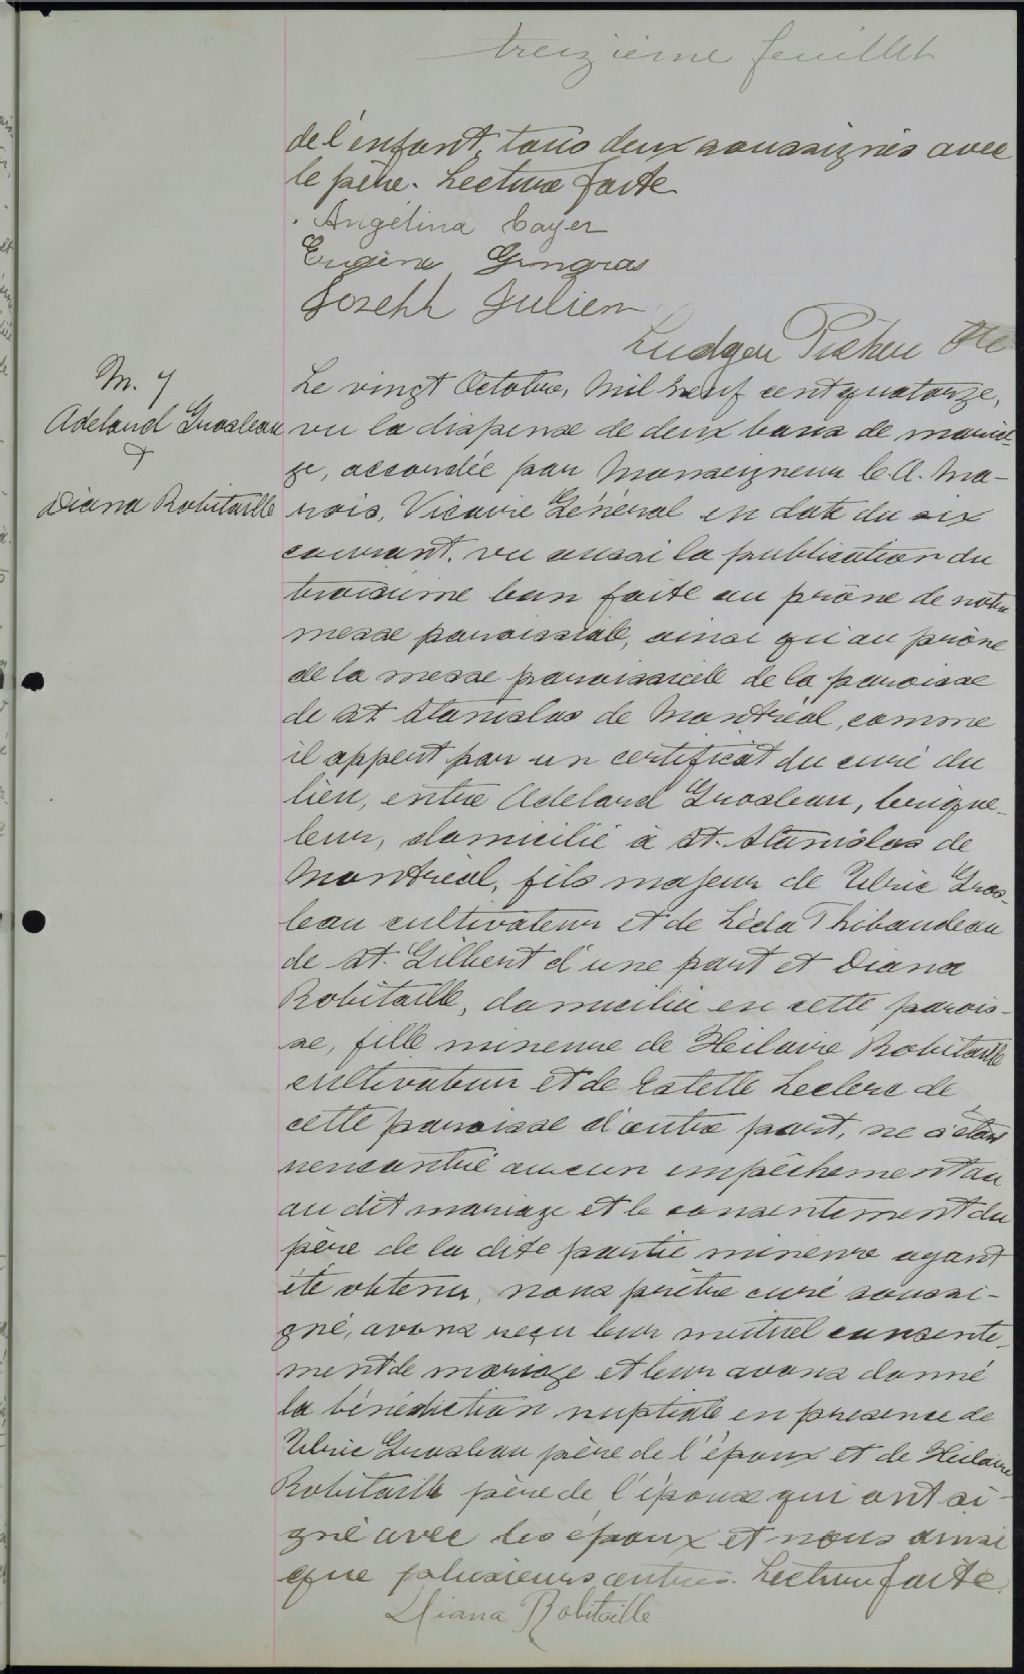 treizième feuillet
de l'enfant, tous deux soussignés avec
le père. Lecture faite
Angélina Cayer
Eugène Gingras
Joseph Julien
Ludger Ptre
M. 7
Adelard Grosleau
&
Diana Robitaille
Le vingt Octobre, mil neuf cent quatorze,
vu la dispense de deux bans de maria-
ge, accordée par Monseigneur C. A. Ma-
rois, Vicaire Général en date du six
courant, vu aussi la publication du
troisième ban faite au prône de notre
messe paroissiale, ainsi qu'au prône
de la messe paroissielle de la paroisse
de St. Stanislas de Montréal, comme
il appert par un certificat du curé du
lieu, entre Adelard Grosleau, brique-
leur, domicilié à St. Stanislas de
Montréal, fils majeur de Ulric Gros-
leau cultivateur et de Léda Thibaudeau
de St. Gilbert d'une part et Diana
Robitaille, domiciliée en cette parois-
se, fille mineure de Heilaire Robitaille
cultivateur et de Estelle Leclerc de
cette paroisse d'autre part, ne s'étant
rencontré aucun empêchement au
au dit mariage et le consentement du
père de la dite partie mineure ayant
été obtenu, nous prêtre curé soussi-
gné, avons reçu leur mutuel consente-
ment de mariage et leur avons donné
la bénédiction nuptiale en présence de
Ulric Grosleau père de l'époux et de Heilaire
Robitaille père de l'épouse qui ont si-
gné avec les époux et nous ainsi
que plusieurs autres. Lecture faite.
Diana Robitaille